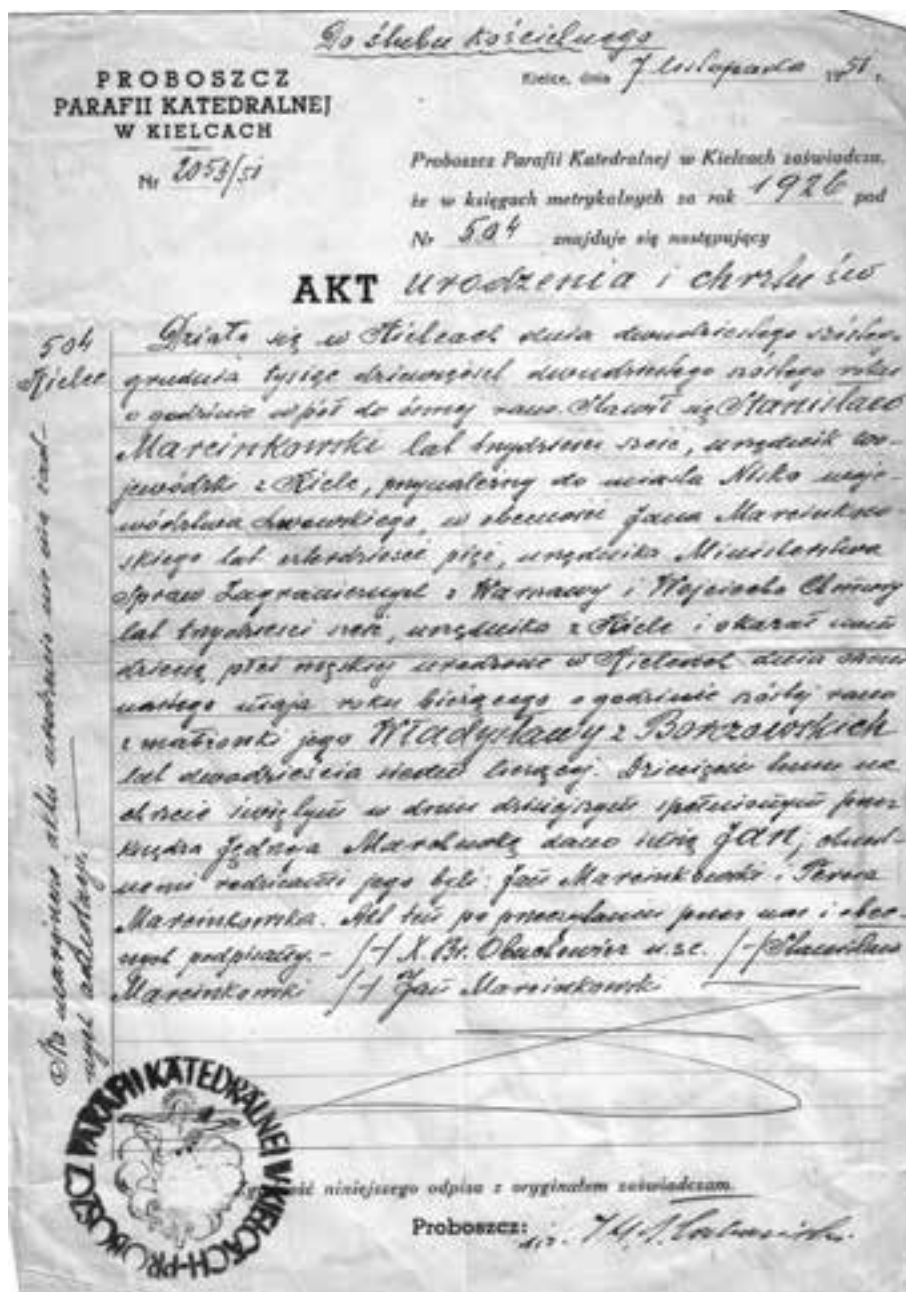 Do ślubu kościelnego
PROBOSZCZ
PARAFII KATEDRALNEJ
W KIELCACH
Nr 2053/51
Kielce, dnia 7 listopada 1951 r.
Proboszcz Parafii Katedralnej w Kielcach zaświadcza,
że w księgach metrykalnych za rok 1926 pod
Nr 504 znajduje się następujący
AKT urodzenia i chrztu św
504
Kielce
Działo się w Kielcach dnia dwudziestego szóstego
grudnia tysiąc dziewięćset dwudziestego szóstego roku
o godzinie wpół do ósmej rano. Stawił się Stanisław
Marcinkowski lat trzydzieści sześć, urzędnik wo-
jewódzki z Kielc, przynależny do miasta Nisko woje-
wództwa Lwowskiego, w obecności Jana Marcinkow-
skiego lat czterdzieści pięć, urzędnika Ministerstwa
Spraw Zagranicznych z Warszawy i Wojciecha
lat trzydzieści sześć, urzędnika z Kielc i okazał nam
dziecię płci męskiej urodzone w Kielcach dnia
maja roku bieżącego o godzinie szóstej rano
z małżonki jego Władysławy z
lat dwadzieścia siedem liczącej. Dziecięciu temu na
chrzcie świętym w dniu dzisiejszym spełnionym przez
księdza Jędrzeja dano imię Jan, a
rodzicami jego byli: Jan Marcinkowski i Teresa
Marcinkowska. Akt ten po przeczytaniu przez nas i obec-
nych podpisany.- /-/ X. Br. Obuchowicz u.s.c. /-/ Stanisław
Marcinkowski /-/ Jan Marcinkowski
Na marginesie aktu urodzenia nie ma żad-
nych adnotacji.
PROBOSZCZ PARAFII KATEDRALNEJ W KIELCACH
niniejszego odpisu z oryginałem zaświadczam.
Proboszcz: